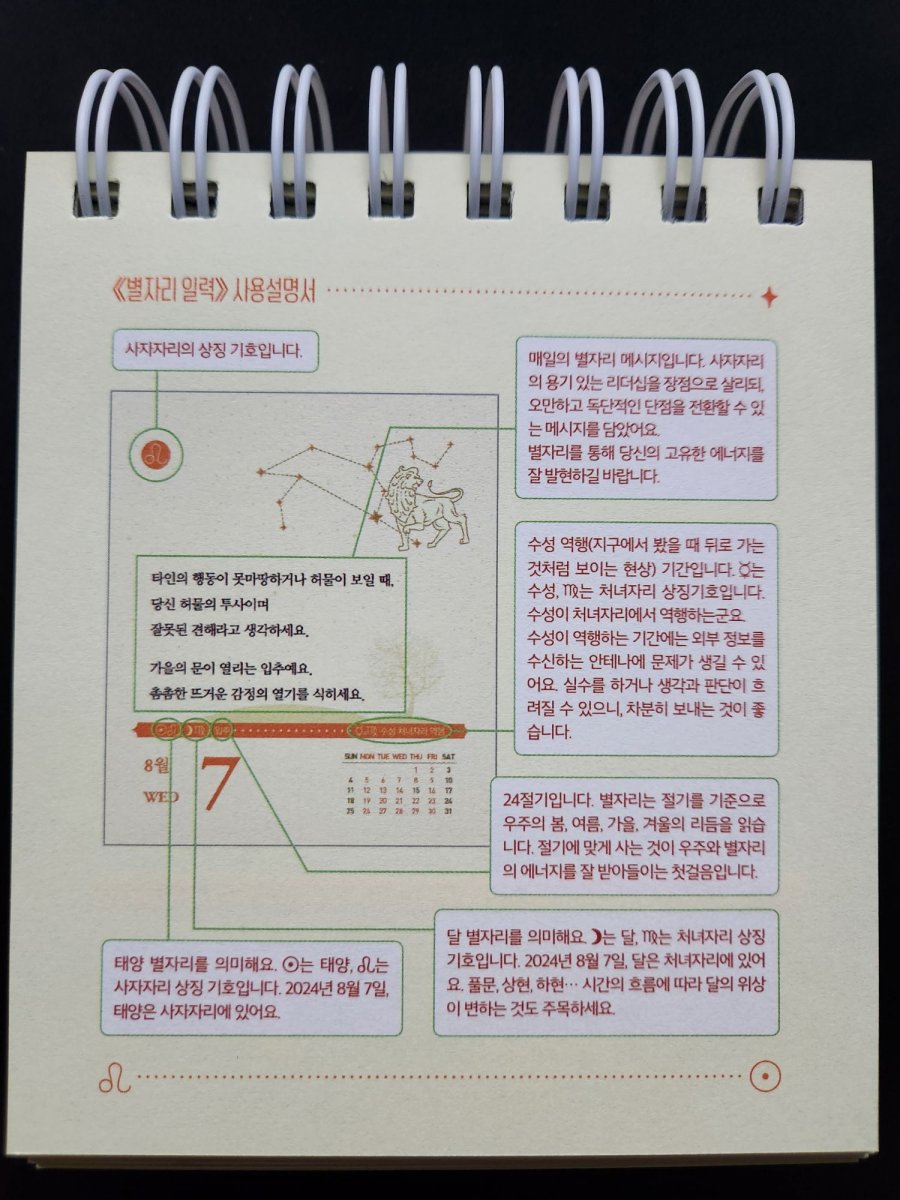 《별자리 일력》 사용설명서
사자자리의 상징 기호입니다.
매일의 별자리 메시지입니다. 사자자리
의 용기 있는 리더십을 장점으로 살리되,
오만하고 독단적인 단점을 전환할 수 있
는 메시지를 담았어요.
별자리를 통해 당신의 고유한 에너지를
잘 발현하길 바랍니다.
♌
타인의 행동이 못마땅하거나 허물이 보일 때,
당신 허물의 투사이며
잘못된 견해라고 생각하세요.
가을의 문이 열리는 입추예요.
촘촘한 뜨거운 감정의 열기를 식히세요.
수성 역행(지구에서 봤을 때 뒤로 가는
것처럼 보이는 현상) 기간입니다. ☿는
수성, ♍는 처녀자리 상징기호입니다.
수성이 처녀자리에서 역행하는군요.
수성이 역행하는 기간에는 외부 정보를
수신하는 안테나에 문제가 생길 수 있
어요. 실수를 하거나 생각과 판단이 흐
려질 수 있으니, 차분히 보내는 것이 좋
습니다.
☉♌ ☽♍ 입추 ☿♍ 수성 처녀자리 역행
8월
WED
7
SUN MON TUE WED THU FRI SAT
1 2 3
4 5 6 7 8 9 10
11 12 13 14 15 16 17
18 19 20 21 22 23 24
25 26 27 28 29 30 31
24절기입니다. 별자리는 절기를 기준으로
우주의 봄, 여름, 가을, 겨울의 리듬을 읽습
니다. 절기에 맞게 사는 것이 우주와 별자리
의 에너지를 잘 받아들이는 첫걸음입니다.
태양 별자리를 의미해요. ☉는 태양, ♌는
사자자리 상징 기호입니다. 2024년 8월 7일,
태양은 사자자리에 있어요.
달 별자리를 의미해요. ☽는 달, ♍는 처녀자리 상징
기호입니다. 2024년 8월 7일, 달은 처녀자리에 있어
요. 풀문, 상현, 하현… 시간의 흐름에 따라 달의 위상
이 변하는 것도 주목하세요.
♌ ☉